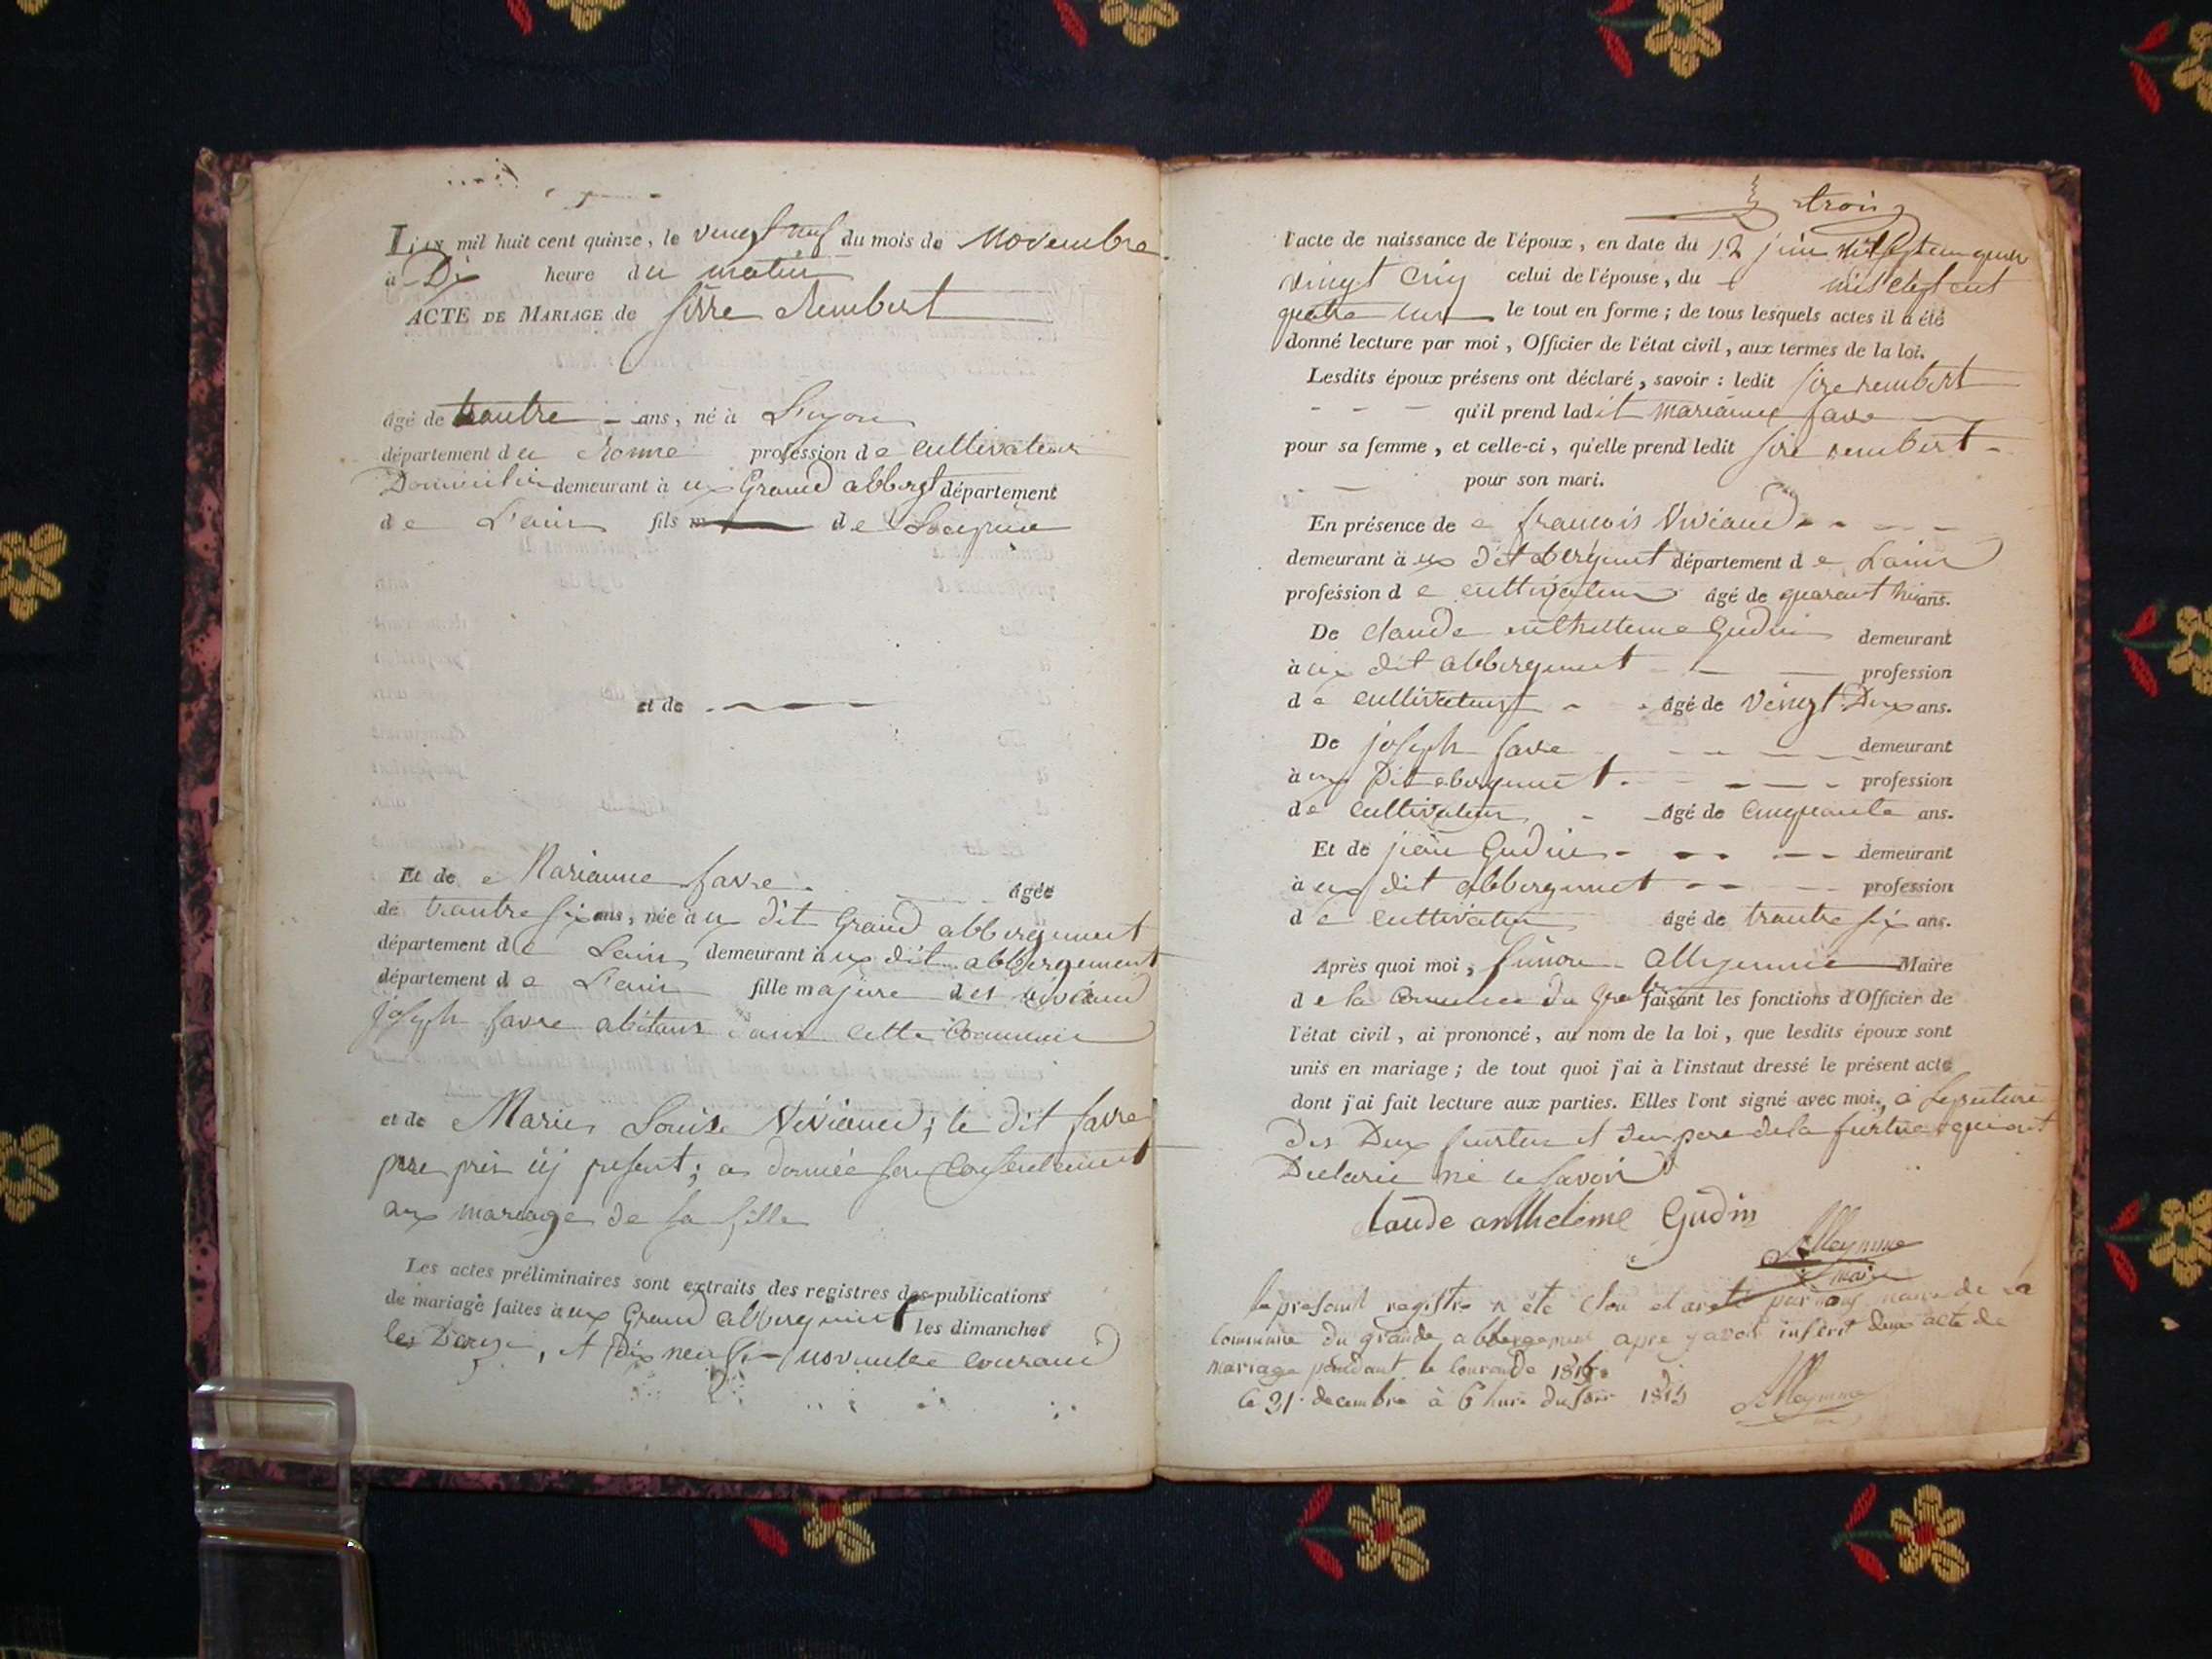 L'an mil huit cent quinze, le vingt neuf du mois de Novembre
à Dix heure du matin
ACTE DE MARIAGE de Sirre Rembert
âgé de trantre ans, né à Lyon
département du Rhonne profession de cultivateur
Domicilié demeurant à ux Grand abbergt département
de L'ain fils m de Locquie
et de
Et de e Marianne favre âgée
de trantre six ans, née à ux dit Grand abbergement
département de Lain demeurant à ux dit abbergement
département de L'ain fille majure des viviand
joseph favre abitant dans cette Commune
et de Marie Louise Viviand; le dit favre
pere prin icy present; a donnée son Consentement
aux mariage de sa fille
Les actes préliminaires sont extraits des registres des publications
de mariage faites à ux Grand abbergement les dimanches
les Douze, et Dix neuf novembre courand
trois
l'acte de naissance de l'époux, en date du 12 juin mil sept cen quatr
vingt cinq celui de l'épouse, du mil sept cent
quatre le tout en forme; de tous lesquels actes il a été
donné lecture par moi, Officier de l'état civil, aux termes de la loi.
Lesdits époux présens ont déclaré, savoir : ledit sire rembert
qu'il prend ladit marianne favre
pour sa femme, et celle-ci, qu'elle prend ledit sire rembert
pour son mari.
En présence de e francois Viviand
demeurant à ux dit abergment département de Lain
profession de cultivateur âgé de quarant ans.
De claude anthelleme Gudin demeurant
à ux dit abbergement profession
de cultivateur âgé de vingt Deux ans.
De joseph favre demeurant
à ux Dit abergement profession
de cultivateur âgé de cinquante ans.
Et de jean Gudin demeurant
à ux dit abbergement profession
de cultivateur âgé de trantre six ans.
Après quoi moi, Alleymme Maire
de la Commune du Grd faisant les fonctions d'Officier de
l'état civil, ai prononcé, au nom de la loi, que lesdits époux sont
unis en mariage; de tout quoi j'ai à l'instant dressé le présent acte
dont j'ai fait lecture aux parties. Elles l'ont signé avec moi, a
des Deux et du pere de la qui ont
Declarie ne le savoir
Claude antheleme Gudin
Alleymme
maire
le presant registre a été Clou et areté par nous maire de la
Commune du grande abbergement apre y avoir inscrit deux acte de
mariage pendant le courande 1815
Ce 31 decembre à 6 hure du soir 1815 Alleymme